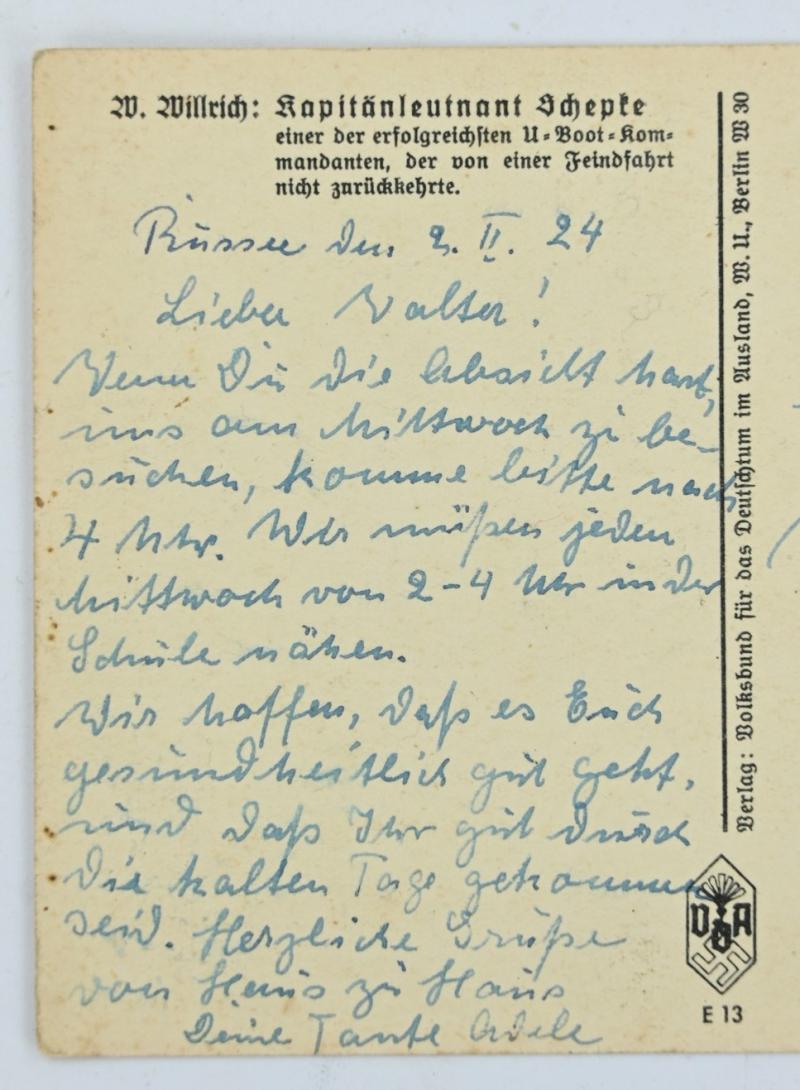 W. Willrich: Kapitänleutnant Schepke
einer der erfolgreichsten U-Boot-Kom-
mandanten, der von einer Feindfahrt
nicht zurückkehrte.
Russee den 2. II. 24
Lieber Walter!
Wenn Du die Absicht hast,
uns am Mittwoch zu be-
suchen, komme bitte nach
4 Uhr. Wir müßen jeden
Mittwoch von 2-4 Uhr in der
Schule nähen.
Wir hoffen, daß es Euch
gesundheitlich gut geht,
und daß Ihr gut durch
die kalten Tage gekommen
seid. Herzliche Grüße
von Haus zu Haus
Deine Tante Adele
Verlag: Volksbund für das Deutschtum im Ausland, W. U., Berlin W 30
VDA
E 13